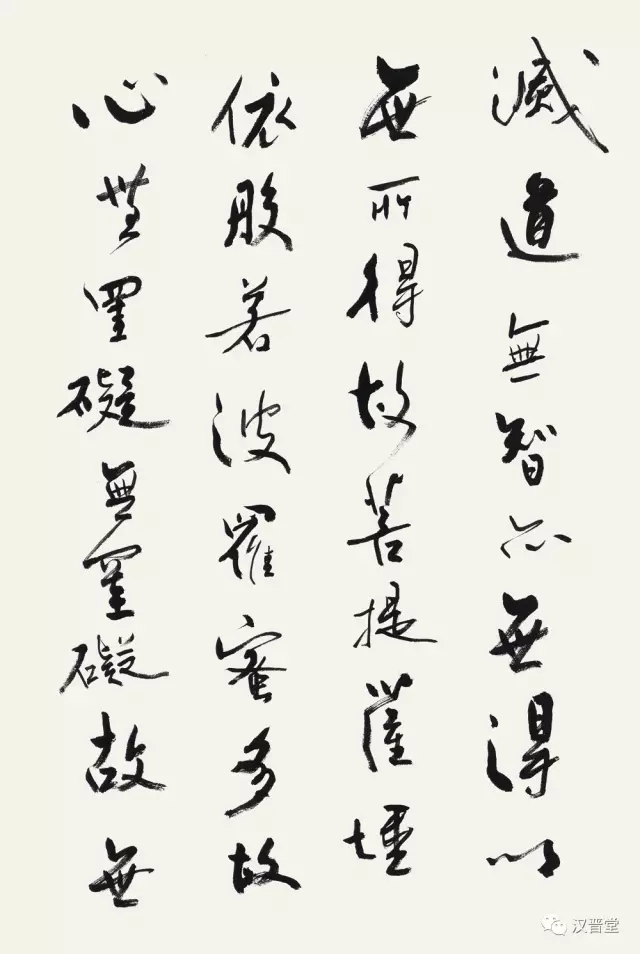 滅道無智亦無得以
無所得故菩提薩埵
依般若波羅蜜多故
心無罣礙無罣礙故無
汉晋堂